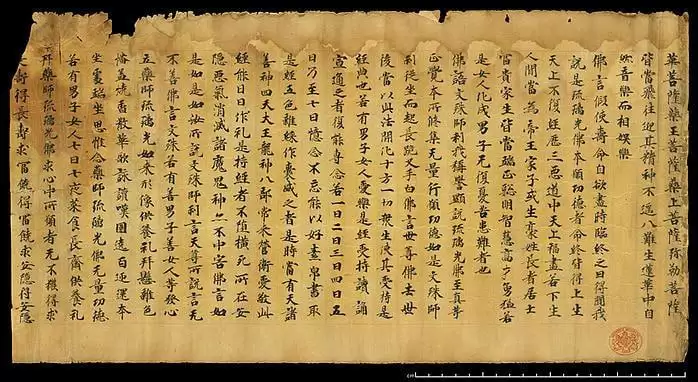 華菩薩藥王菩薩藥上菩薩弥勒菩薩
皆當飛往迎其精神不逕八難生蓮華中自
然音樂而相娛樂
佛言假使壽命自欲盡時臨終之日得聞我
說是琉璃光佛本願功德者命終皆得上生
天上不復經歷三惡道中天上福盡若下生
人間當為帝王家子或生豪姓長者居士
富貴家生皆當端正聰明智慧高才勇猛若
是女人化成男子无復憂苦患難者也
佛語文殊師利我稱譽顯說琉璃光佛至真等
正覺本所修集无量行願功德如是文殊師
利從坐而起長跪叉手白佛言世尊佛去世
後當以此法開化十方一切眾生使其受持是
經典也若有男子女人愛樂是經受持讀誦
宣通之者復能專念若一日二日三日四日五
日乃至七日憶念不忘能以好素帛書取
是經五色雜綵作囊盛之者是時當有天諸
善神四天大王龍神八部常來營衛愛敬此
經能日日作礼是持經者不墮橫死所在安
隱惡氣消滅諸魔鬼神亦不中害佛言如
是如是如汝所說文殊師利言天尊所說言无
不善佛言文殊若有善男子善女人等發心
立藥師琉璃光如來形像供養礼拜懸雜色
幡蓋燒香散華歌詠讚嘆圍遶百迊還本
坐處端坐思惟念藥師琉璃光佛无量功德
若有男子女人七日七夜菜食長齋供養礼
拜藥師琉璃光佛求心中所願者无不獲得求
壽得長壽求富饒得富饒求安隱得安隱